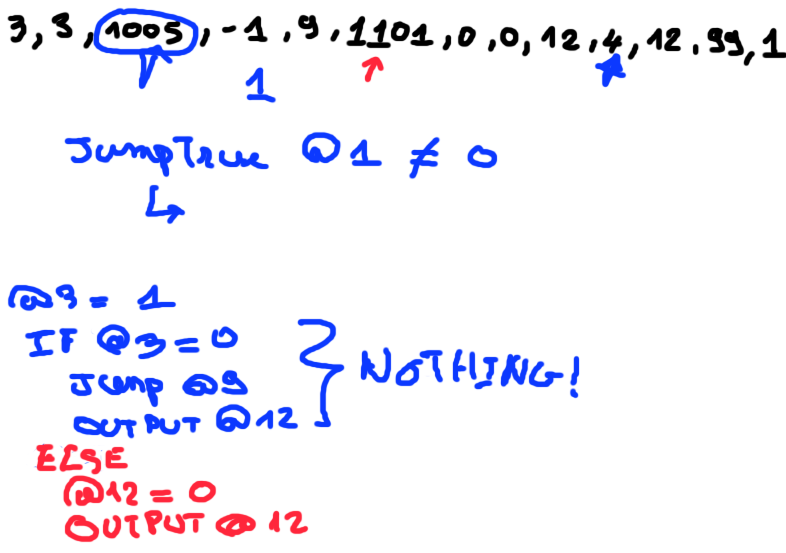 3, 3, 1005, -1, 9, 1101, 0, 0, 12, 4, 12, 99, 1
1
JumpTrue @1 ≠ 0
↳
@3 = 1
IF @3 = 0
Jump @9
OUTPUT @12
} NOTHING!
ELSE
@12 = 0
OUTPUT @ 12